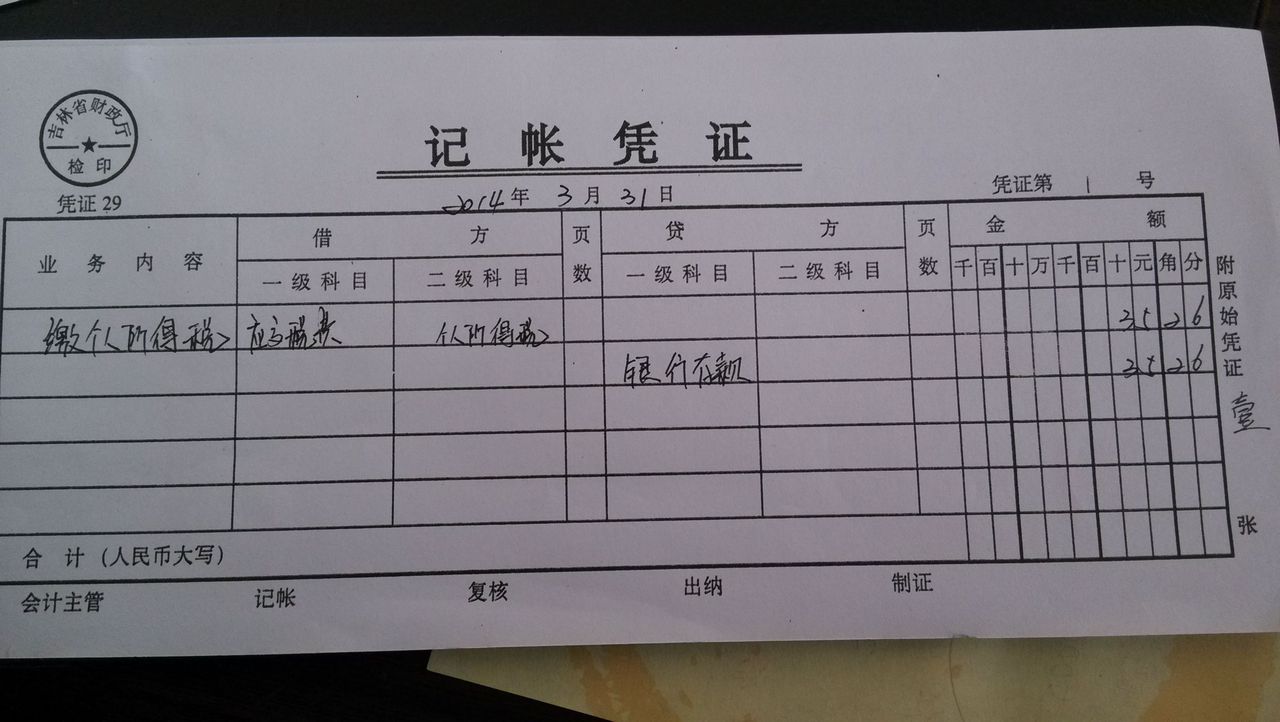 吉林省财政厅
检印
凭证 29
记帐凭证
2014年 3月 31日
凭证第 1 号
业务内容 借方 页数 贷方 页数 金额
一级科目 二级科目 一级科目 二级科目 千百十万千百十元角分
缴个人所得税 应交税费 个人所得税 35 26
银行存款 35 26
合计(人民币大写)
附原始凭证 壹 张
会计主管 记帐 复核 出纳 制证